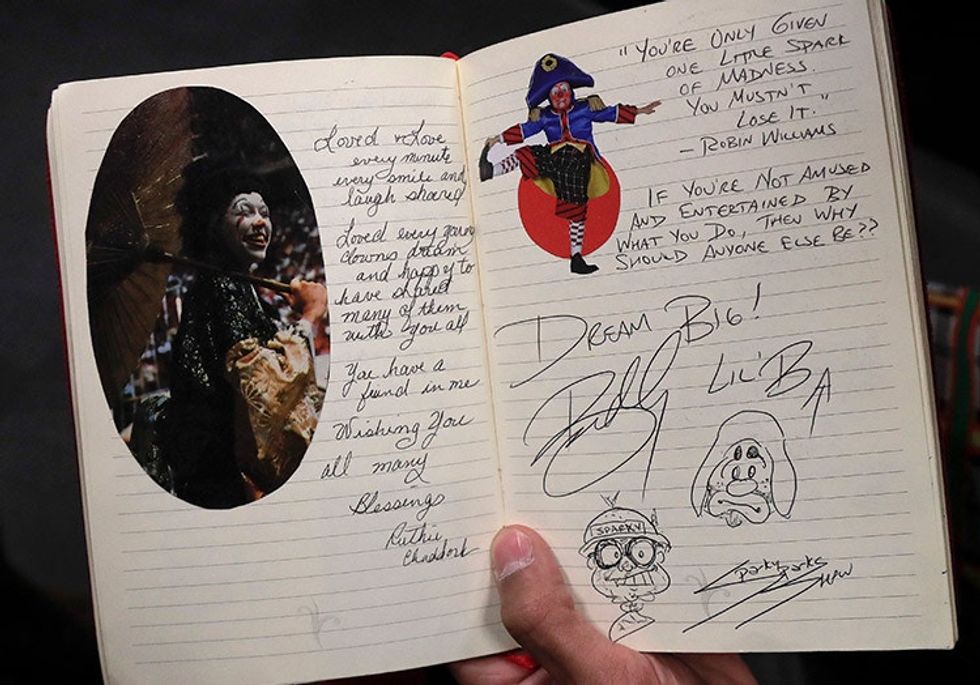 Loved & Love
every minute
every smile and
laugh shared
Loved every
clowns dream
and happy to
have shared
many of them
with you all
You have a
friend in me
Wishing You
all many
Blessings
Ruthie
Chaddock
"YOU'RE ONLY GIVEN
ONE LITTLE SPARK
OF MADNESS.
YOU MUSTN'T
LOSE IT."
- ROBIN WILLIAMS
IF YOU'RE NOT AMUSED
AND ENTERTAINED BY
WHAT YOU DO, THEN WHY
SHOULD ANYONE ELSE BE??
DREAM BIG!
LIL'B
SPARKY
Sparky Sparks